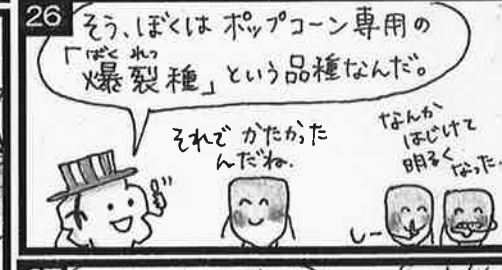 26
そう、ぼくは ポップコーン専用の
「爆裂種」という品種なんだ。
ばくれつ
それで かたかった
んだね.
なんか
はじけて
明るく
なった.
しー